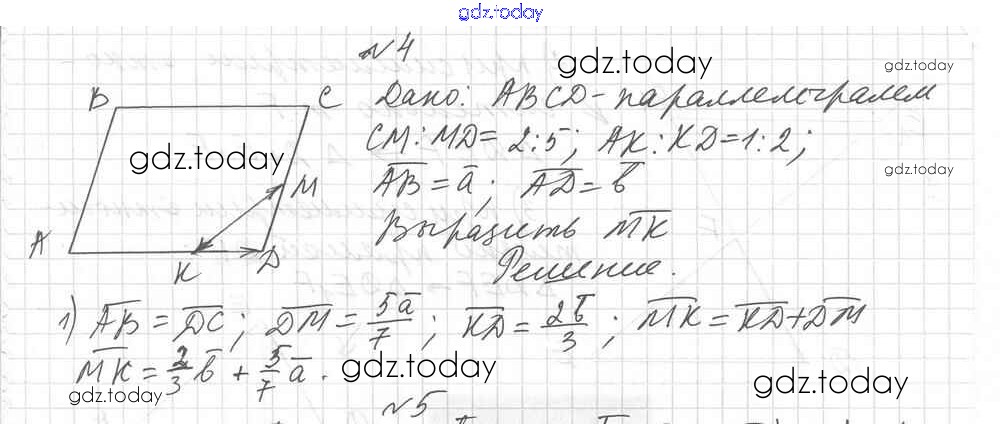 gdz.today
№4
gdz.today
gdz.today
B C
Дано: ABCD-параллелограмм
gdz.today
CM:MD=2:5; AK:KD=1:2;
gdz.today
M
AB=a; AD=b
A K D
Выразить MK
Решение.
1) AB=DC; DM=5a/7; KD=2b/3; MK=KD+DM
MK=2/3b+5/7a.
gdz.today
gdz.today
gdz.today
№5